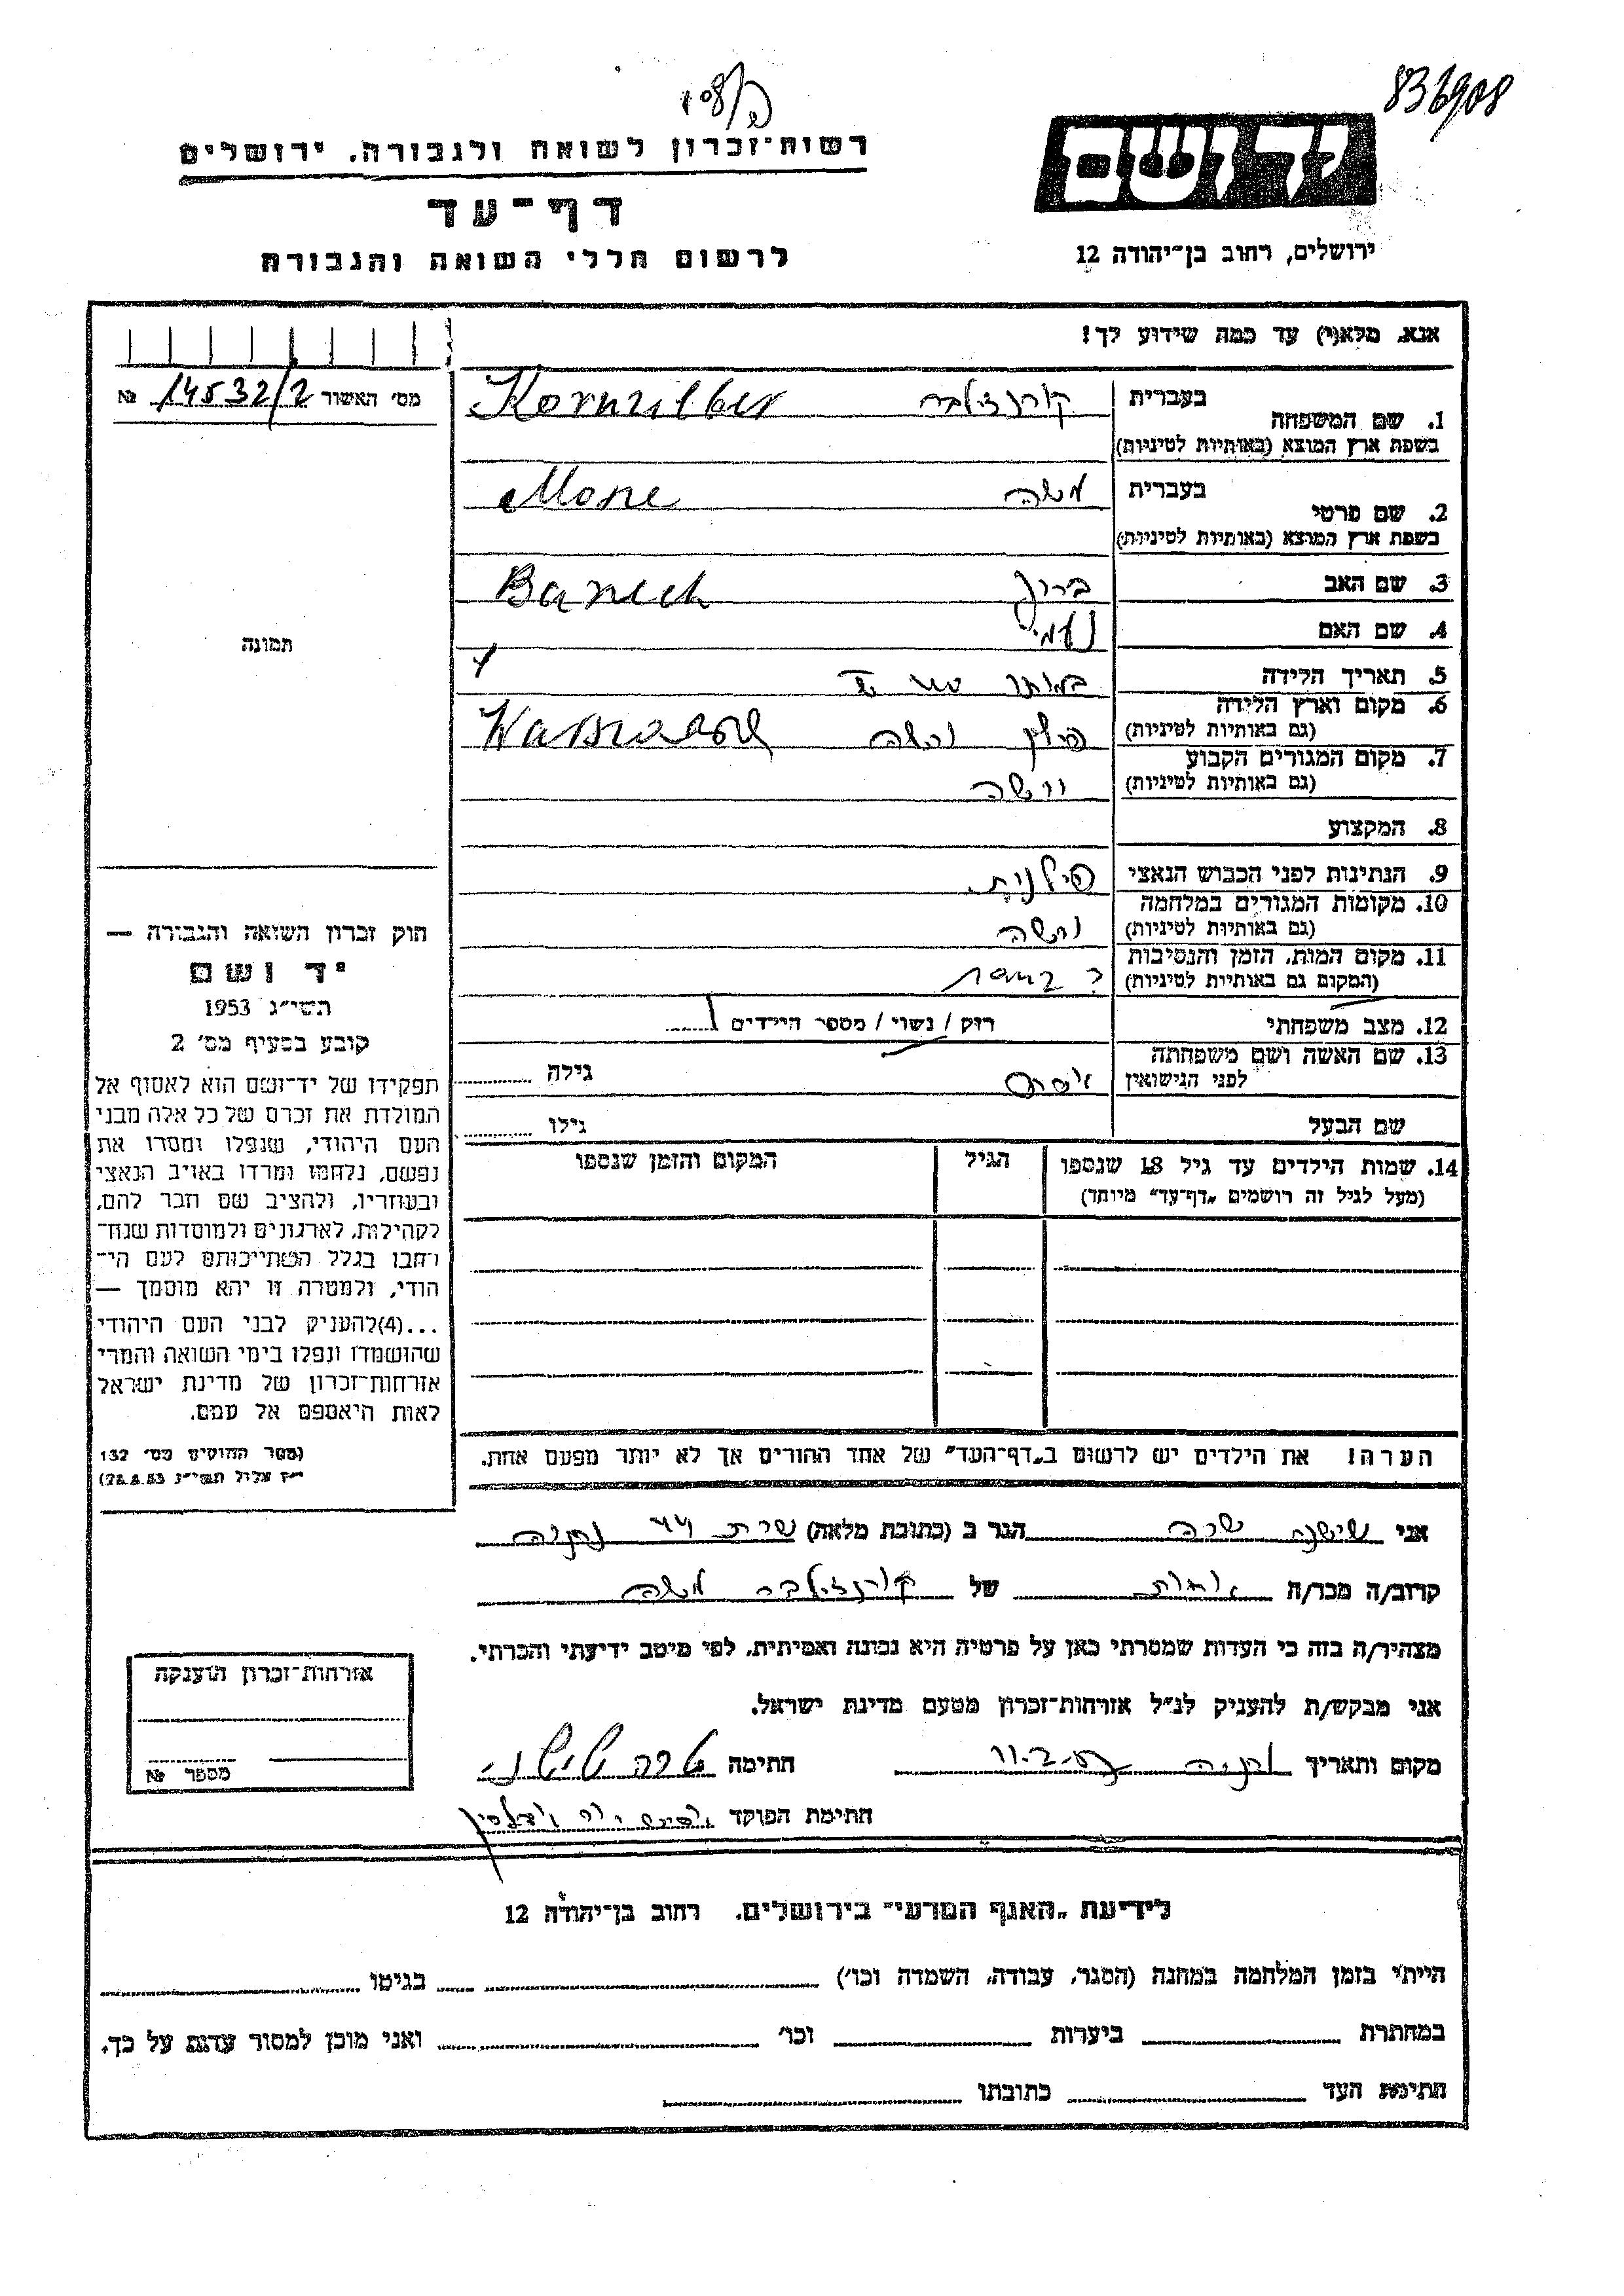 836908
רשות־זכרון לשואה ולגבורה, ירושלים
דף־עד
לרשום חללי השואה והגבורה
יד ושם
ירושלים, רחוב בן־יהודה 12
אנא, מלא(י) עד כמה שידוע לך!
מס׳ האשור 14532/2 №
תמונה
1. שם המשפחה
בעברית קורנזילבר Kornzilber
בשפת ארץ המוצא (באותיות לטיניות)
2. שם פרטי
בעברית משה
בשפת ארץ המוצא (באותיות לטיניות)
3. שם האב ברוך Baruch
4. שם האם נעמי
5. תאריך הלידה
6. מקום וארץ הלידה
(גם באותיות לטיניות) פולין ורשה
7. מקום המגורים הקבוע
(גם באותיות לטיניות) ורשה
8. המקצוע
9. הנתינות לפני הכבוש הנאצי פולנית
10. מקומות המגורים במלחמה
(גם באותיות לטיניות) ורשה
11. מקום המות, הזמן והנסיבות
(המקום גם באותיות לטיניות) ?
12. מצב משפחתי רוק / נשוי / מספר הילדים 1
13. שם האשה ושם משפחתה
לפני הנישואין גילה
שם הבעל גילו
14. שמות הילדים עד גיל 18 שנספו הגיל המקום והזמן שנספו
(מעל לגיל זה רושמים „דף־עד״ מיוחד)
הערה! את הילדים יש לרשום ב„דף־העד״ של אחד ההורים אך לא יותר מפעם אחת.
חוק זכרון השואה והגבורה —
יד ושם
תשי״ג 1953
קובע בסעיף מס׳ 2
תפקידו של יד־ושם הוא לאסוף אל
המולדת את זכרם של כל אלה מבני
העם היהודי, שנפלו ומסרו את
נפשם, נלחמו ומרדו באויב הנאצי
ובעוזריו, ולהציב שם וזכר להם,
לקהילות, לארגונים ולמוסדות שנח־
רחבו בגלל השתייכותם לעם הי־
הודי, ולמטרה זו יהא מוסמך —
...(4)להעניק לבני העם היהודי
שהושמדו ונפלו בימי השואה והמרי
אזרחות־זכרון של מדינת ישראל
לאות היאספם אל עמם.
(ספר החוקים מס׳ 132
י״ז אלול תשי״ג 28.8.53)
אני שרה הגר ב (כתובת מלאה) נתניה
קרוב/ה מכר/ה אחות של קורנזילבר משה
מצהיר/ה בזה כי העדות שמסרתי כאן על פרטיה היא נכונה ואמיתית, לפי מיטב ידיעתי והכרתי.
אני מבקש/ת להעניק לנ״ל אזרחות־זכרון מטעם מדינת ישראל.
מקום ותאריך נתניה חתימה שרה
חתימת הפוקד
אזרחות־זכרון הוענקה
מספר №
לידיעת „האגף המדעי״ בירושלים. רחוב בן־יהודה 12
הייתי בזמן המלחמה במחנה (הסגר, עבודה, השמדה וכו׳) בגיטו
במחתרת ביערות וכו׳ ואני מוכן למסור עדות על כך.
חתימת העד כתובתו